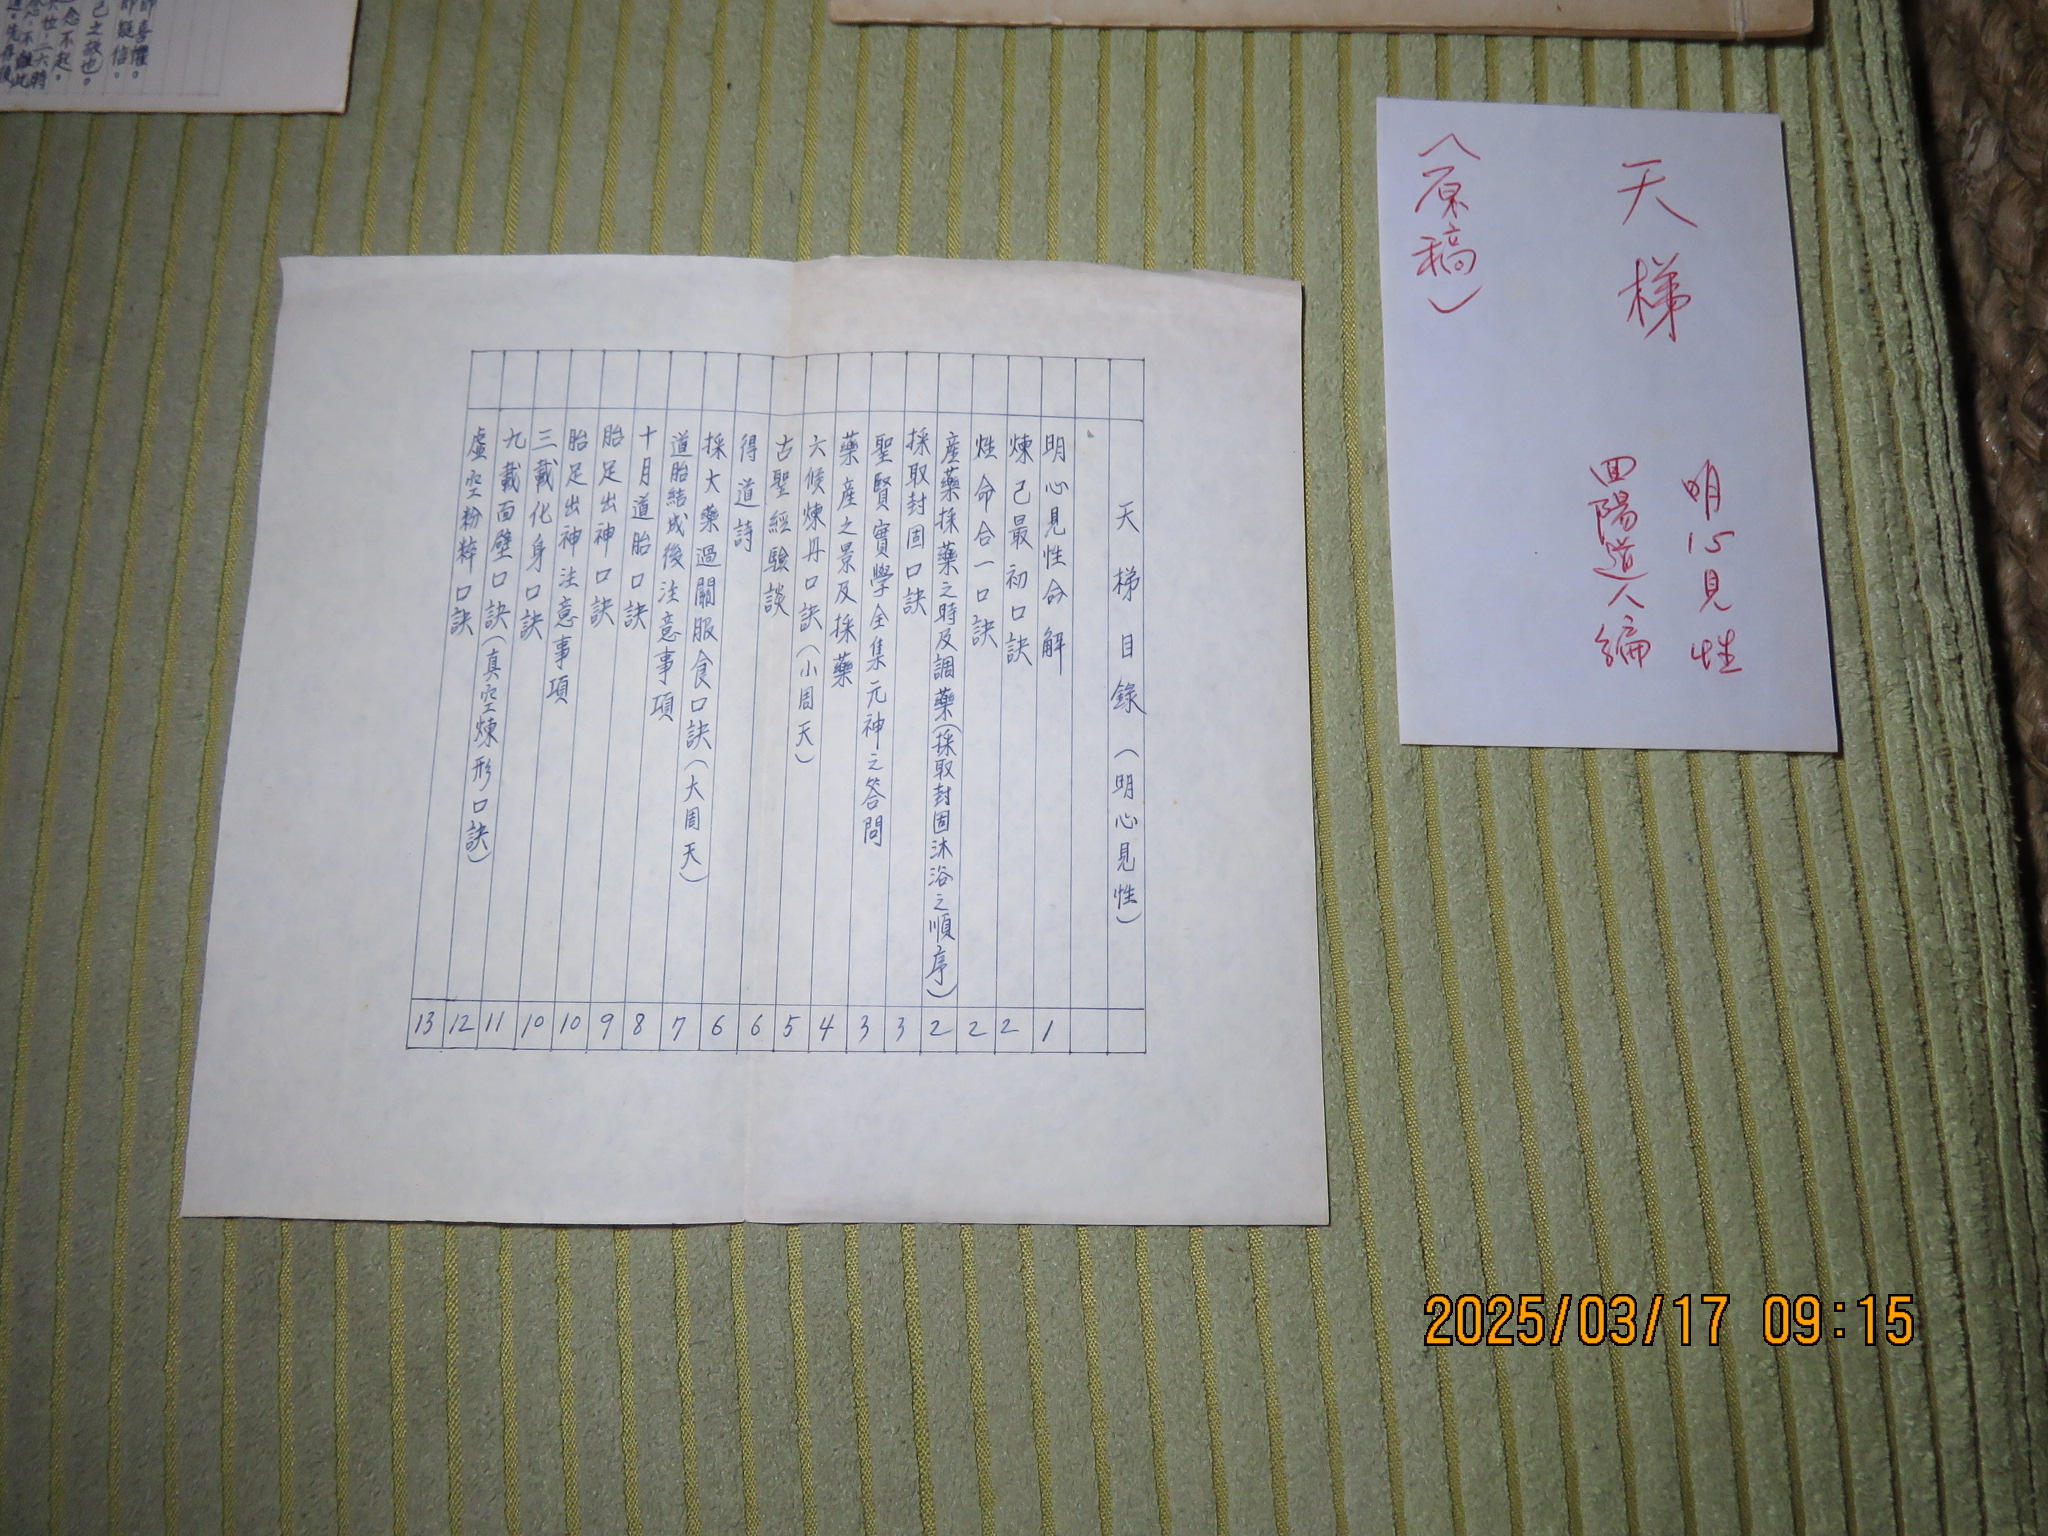 天梯
明心見性
囬陽道人編
(原稿)
天梯目錄(明心見性)
明心見性命解 1
煉己最初口訣 2
性命合一口訣 2
産藥採藥之時及調藥(採取封固沐浴之順序) 2
採取封固口訣 3
聖賢實學全集元神之答問 3
藥産之景及採藥 4
六候煉丹口訣(小周天) 5
古聖經驗談 6
得道詩 6
採大藥過關服食口訣(大周天) 7
道胎結成後注意事項 8
十月道胎口訣 9
胎足出神口訣 10
胎足出神注意事項 10
三載化身口訣 11
九載面壁口訣(真空煉形口訣) 12
虛空粉粹口訣 13
喜懼。
疑信。
己之故也。
念不起。
位。二六時
念。不離此
先存後
2025/03/17 09:15